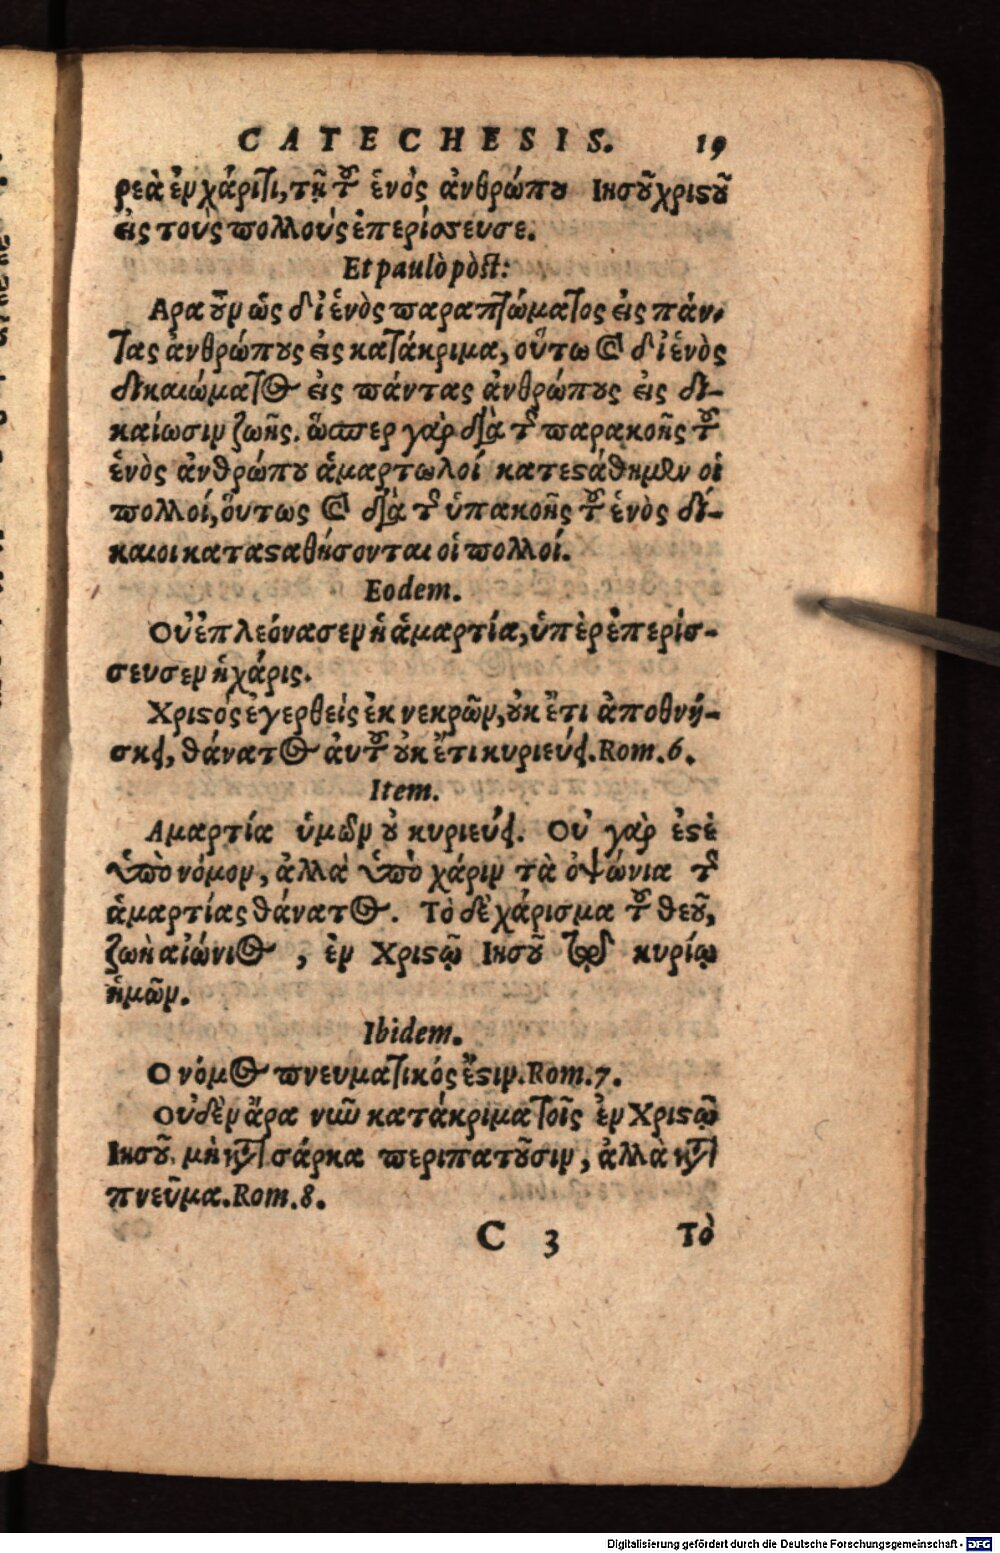 CATECHESIS. 19
ρεὰ ἐν χάριτι, τῇ τοῦ ἑνός ἀνθρώπου Ιησοῦ χριϛοῦ
εἰς τοὺς πολλούς ἐπερίσσευσε.
Et paulò pòst:
Αρα οὖν ὡς δι ἑνὸς παραπτώματος εἰς πάν-
τας ἀνθρώπους εἰς κατάκριμα, οὕτω καὶ δι ἑνὸς
δικαιώματος εἰς πάντας ἀνθρώπους εἰς δι-
καίωσιν ζωῆς. ὥσπερ γὰρ διὰ τῆς παρακοῆς τοῦ
ἑνὸς ἀνθρώπου ἁμαρτωλοί κατεϛάθημεν οἱ
πολλοί, ὅυτως καὶ διὰ τῆς ὑπακοῆς τοῦ ἑνὸς δί-
καιοι καταϛαθήσονται οἱ πολλοί.
Eodem.
Οὗ ἐπλεόνασεν ἡ ἁμαρτία, ὑπὲρ ἐπερίσ-
σευσεν ἡ χάρις.
Χριϛός ἐγερθείς ἐκ νεκρῶν, οὐκ ἔτι ἀποθνή-
σκει, θάνατος ἀυτοῦ οὐκ ἔτι κυριεύει. Rom. 6.
Item.
Αμαρτία ὑμῶν οὐ κυριεύει. Οὐ γὰρ ἐϛὲ
ὑπὸ νόμον, ἀλλὰ ὑπὸ χάριν τὰ ὀψώνια τῆς
ἁμαρτίας θάνατος. Τὸ δὲ χάρισμα τοῦ θεοῦ,
ζωὴ αἰώνιος, ἐν Χριϛῷ Ιησοῦ τῷ κυρίῳ
ἡμῶν.
Ibidem.
Ο νόμος πνευματικός ἔϛιν. Rom. 7.
Οὐδὲν ἄρα νῦν κατάκριμα τοῖς ἐν Χριϛῷ
Ιησοῦ, μὴ κατὰ σάρκα περιπατοῦσιν, ἀλλὰ κατὰ
πνεῦμα. Rom. 8.
C 3 Τὸ
Digitalisierung gefördert durch die Deutsche Forschungsgemeinschaft - DFG